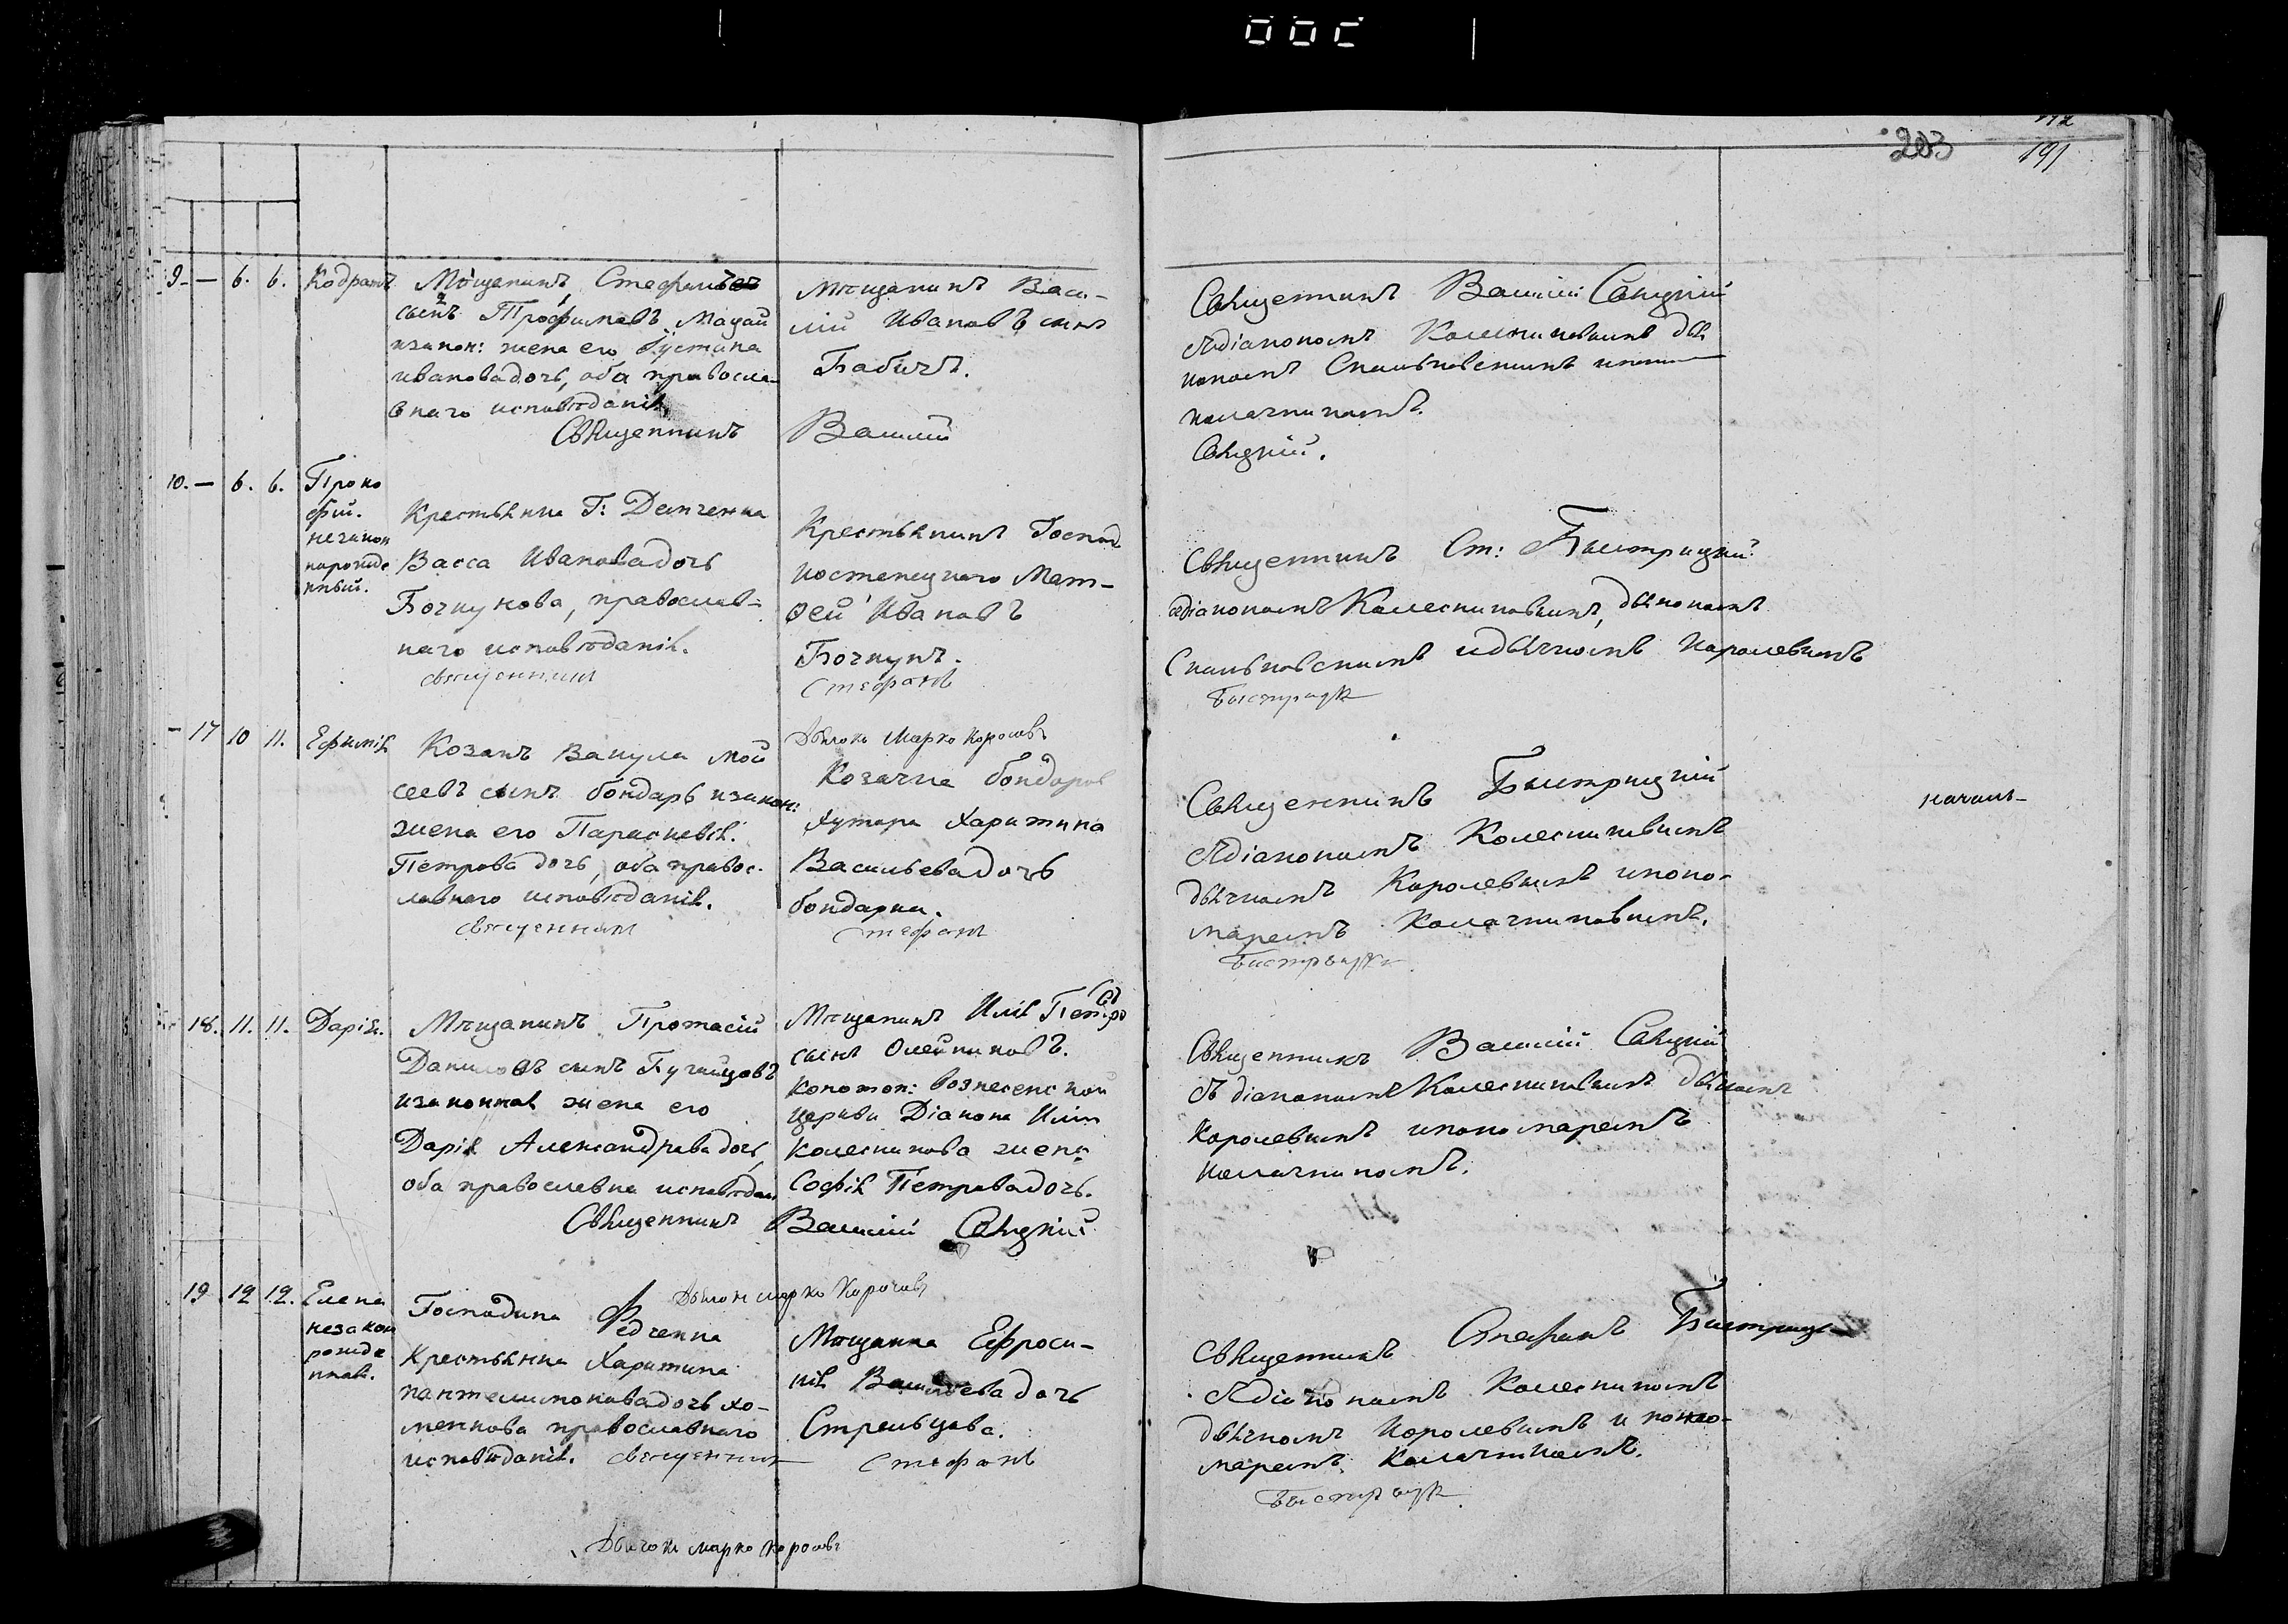 203
191
9. — 6. 6. Кодратъ
Мѣщанинъ Стефанъ
сынъ Трофимовъ Мацай
изакон: жена его Іустина
иванова дочь, оба правосла-
внаго исповѣданія.
Священникъ
Мѣщанинъ Васи-
лій Ивановъ сынъ
Бабичъ.
Василій
Священникъ Василій Сѣцкій
съ діакономъ Колесниковымъ
Сѣцкій.
10. — 6. 6. Проко
фій.
незакон
норожде
нный.
Крестьянка Г: Демченка
Васса Иванова дочь
Бочкунова, православ-
наго исповѣданія.
священникъ
Крестьянинъ Господ
Костенецкаго Мат-
ѳей Ивановъ
Бочкунъ.
Стефанъ
Священникъ Ст: Быстрицкій
съ діакономъ Колесниковымъ, дьякономъ
идьячкомъ Королевымъ
Быстрицк
17 10 11. Ефимія
Козакъ Вакула Мой
сеевъ сынъ бондарь изакон:
жена его Параскевія
Петрова дочь, оба правос-
лавнаго исповѣданія.
священникъ
Дьячокъ Марко Королевъ
Козачка бондарев
хутора Харитина
Васильева дочь
бондарка.
Стефанъ
Священникъ Быстрицкій
съ діакономъ Колесниковымъ
дьячкомъ Королевымъ ипоно-
маремъ Колачниковымъ.
Быстрицк
18. 11. 11. Дарія.
Мѣщанинъ Протасій
Даниловъ сынъ
изаконная жена его
Дарія Александрова дочь,
оба православна исповѣдан
Священникъ
Мѣщанинъ Илія Петро
въ
сынъ Олейниковъ.
конотоп: Вознесенской
церкви Діакона Иліи
Колесникова жена
Софія Петрова дочь.
Василій Сѣцкій
Священникъ Василій Сѣцкій
съ діакономъ Колесниковымъ дьячкомъ
Королевымъ ипономаремъ
Колачникомъ.
19 12 12. Елена
незакон
рожде
нная.
Господина Федченка
Крестьянка Харитина
пантелимонова дочь Хо-
менкова православнаго
исповѣданія. священникъ
Дьячокъ Марко Королевъ
Мѣщанка Ефроси-
нія Васильева дочь
Стрельцова.
Стефанъ
Священникъ Стефанъ Быстрицк
съ діакономъ Колесникомъ
дьячкомъ Королевымъ и поно-
маремъ Колачникомъ.
Быстрицк
Дьячокъ Марко Королевъ